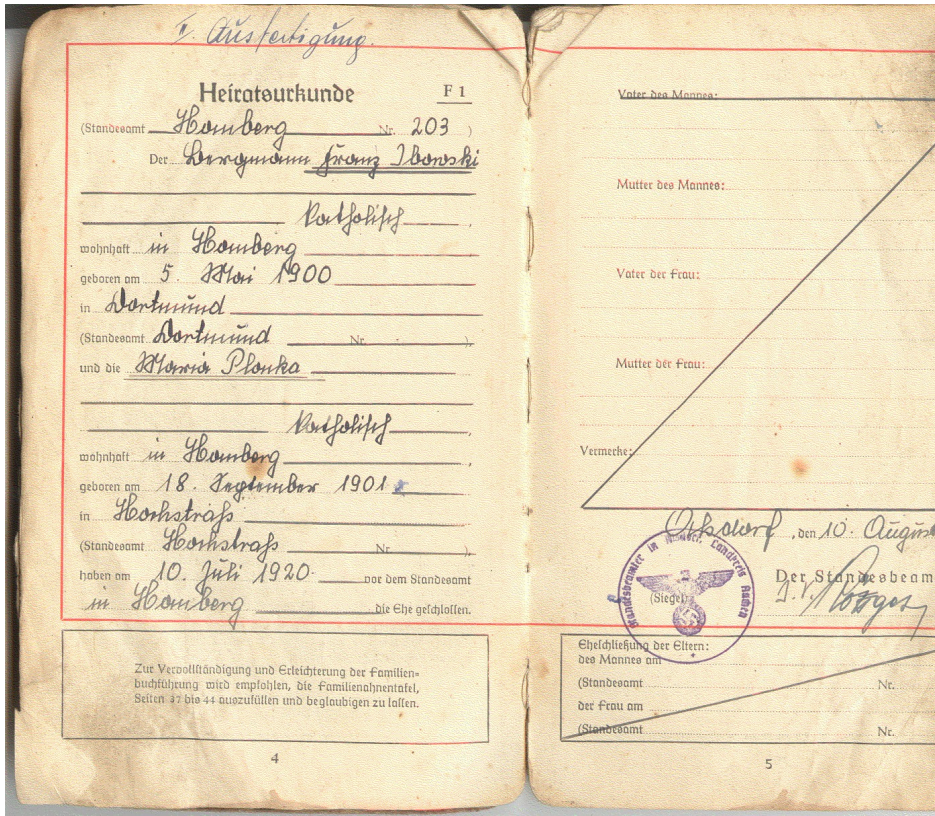 I. Ausfertigung.
Heiratsurkunde F 1
(Standesamt Homberg Nr. 203 )
Der Bergmann Franz Ibowski
Katholisch ,
wohnhaft in Homberg
geboren am 5. Mai 1900
in Dortmund
(Standesamt Dortmund Nr. ),
und die Maria Plonka
Katholisch ,
wohnhaft in Homberg ,
geboren am 18. September 1901
in Hochstraß
(Standesamt Hochstraß Nr ),
haben am 10. Juli 1920 vor dem Standesamt
in Homberg die Ehe geschlossen.
Zur Vervollständigung und Erleichterung der Familien-
buchführung wird empfohlen, die Familienahnentafel,
Seiten 37 bis 44 auszufüllen und beglaubigen zu lassen.
4
Vater des Mannes:
Mutter des Mannes:
Vater der Frau:
Mutter der Frau:
Vermerke:
, den 10. August
Der Standesbeam
(Siegel)
Standesbeamter in Landkreis Aachen
Eheschließung der Eltern:
des Mannes am
(Standesamt Nr.
der Frau am
(Standesamt Nr.
5